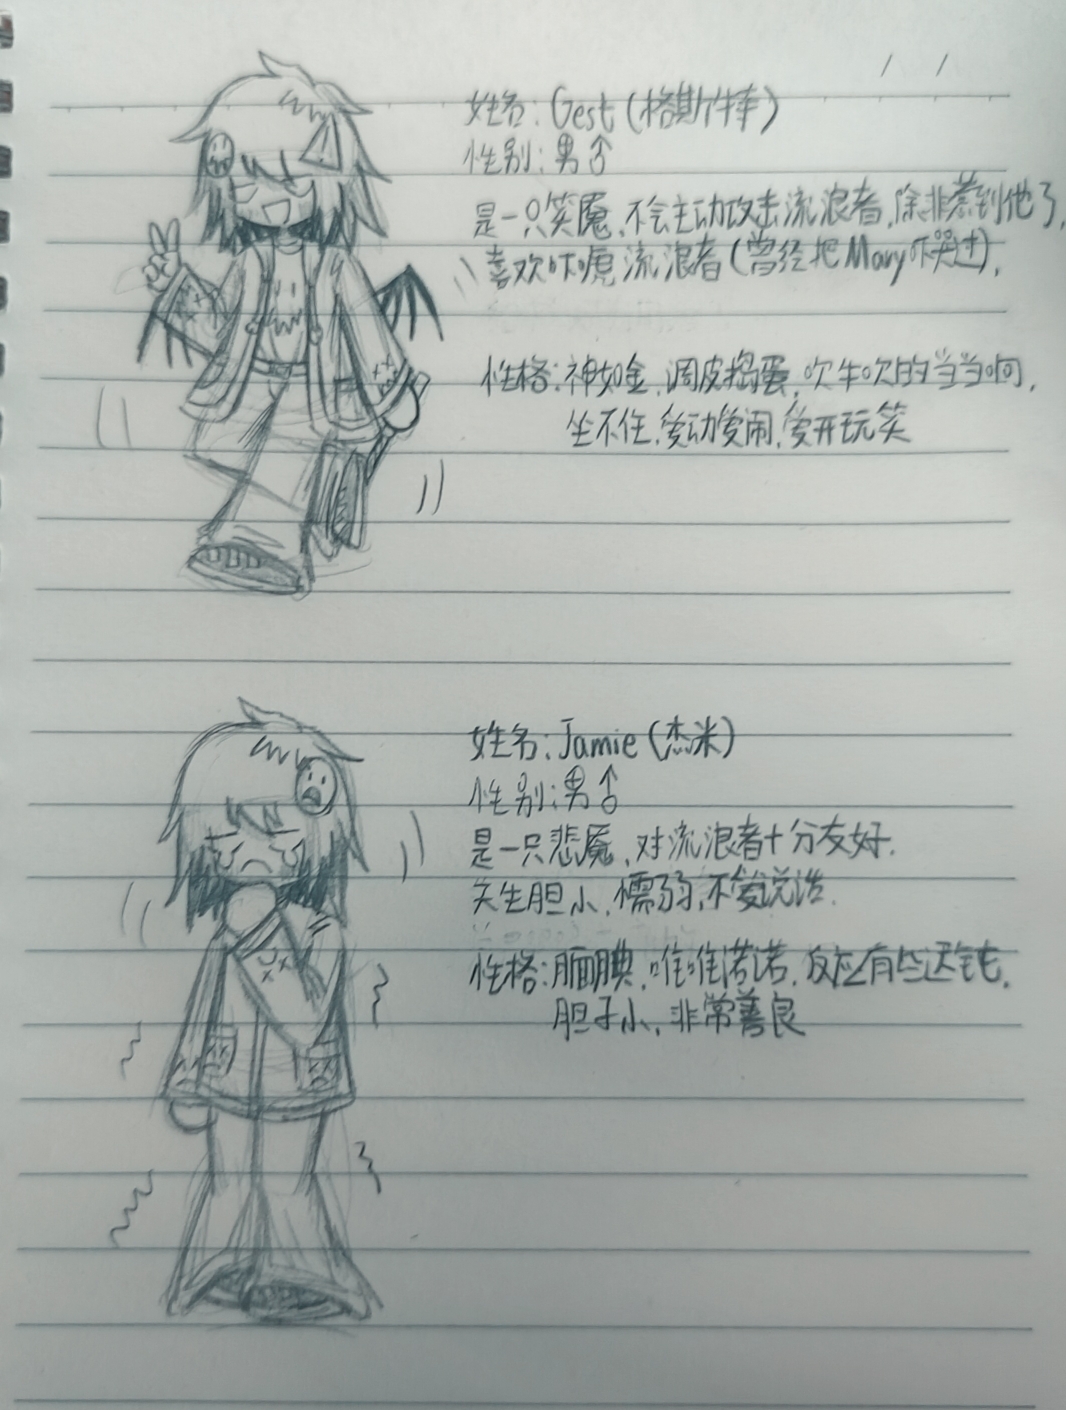 姓名：Gest（格斯特）
性别：男♂
是一只笑魇，不会主动攻击流浪者，除非惹到他了，
喜欢吓唬流浪者（曾经把Mary吓哭过），
性格：神如金，调皮捣蛋，吹牛吹的当当响，
坐不住，爱动爱闹，爱开玩笑
姓名：Jamie（杰米）
性别：男♂
是一只悲魇，对流浪者十分友好，
天生胆小，懦弱，不爱说话．
性格：腼腆，唯唯诺诺，反应有些迟钝，
胆子小，非常善良